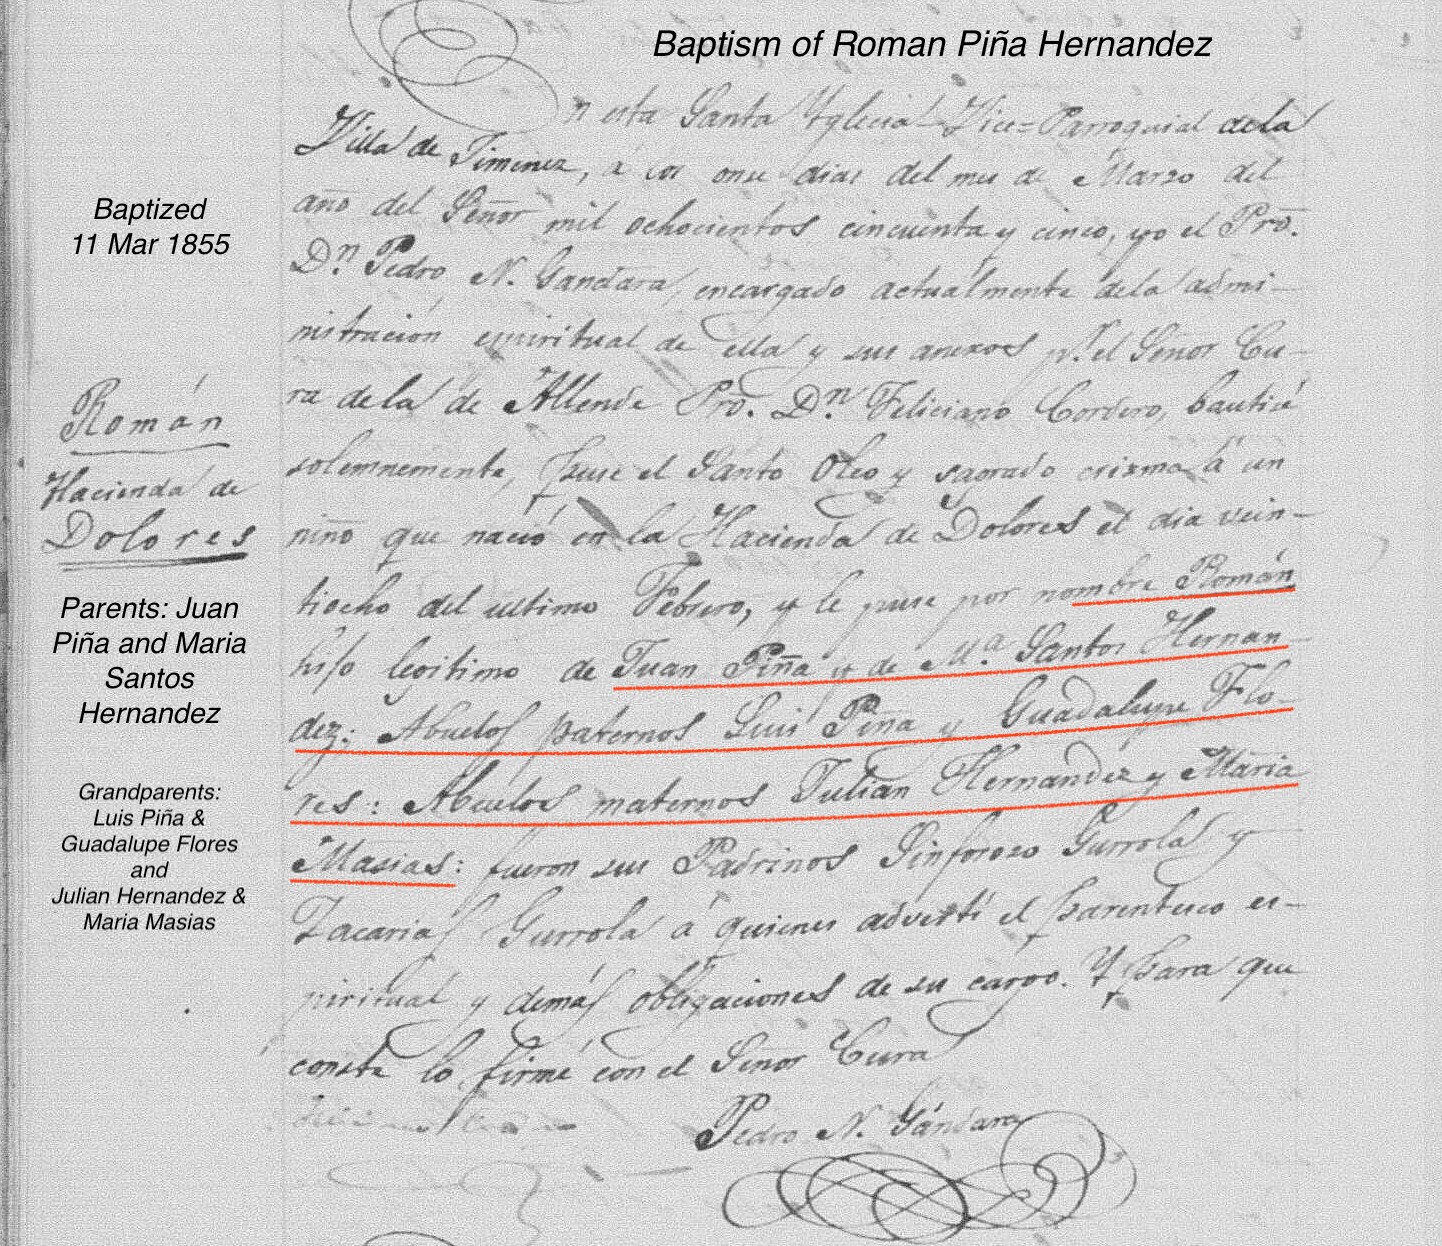 Baptism of Roman Piña Hernandez
Baptized
11 Mar 1855
Román
Hacienda de
Dolores
Parents: Juan
Piña and Maria
Santos
Hernandez
Grandparents:
Luis Piña &
Guadalupe Flores
and
Julian Hernandez &
Maria Masias
En esta Santa Yglecia Vice=Parroquial dela
Villa de Jimenez, á los once dias del mes de Marzo del
año del Señor mil ochocientos cincuenta y cinco, yo el Pro.
Dn. Pedro N. Gandara, encargado actualmente dela admi-
nistración espiritual de ella y sus anexos pr. el Señor Cu-
ra dela de Allende Pro. Dn. Feliciano Cordero, bauticé
solemnemente, puse el Santo Oleo y sagrado crisma á un
niño que nació en la Hacienda de Dolores el dia vein-
tiocho del ultimo Febrero, y le puse por nombre Román
hijo legitimo de Juan Piña y de Ma. Santos Hernan-
dez: Abuelos paternos Luis Piña y Guadalupe Flo-
res: Abuelos maternos Julian Hernandez y Maria
Masias: fueron sus Padrinos Sinforozo Gurrola y
Zacarias Gurrola á quienes advertí el parentesco es-
piritual y demás obligaciones de su cargo. Y para que
conste lo firmé con el Señor Cura
Pedro N. Gándara